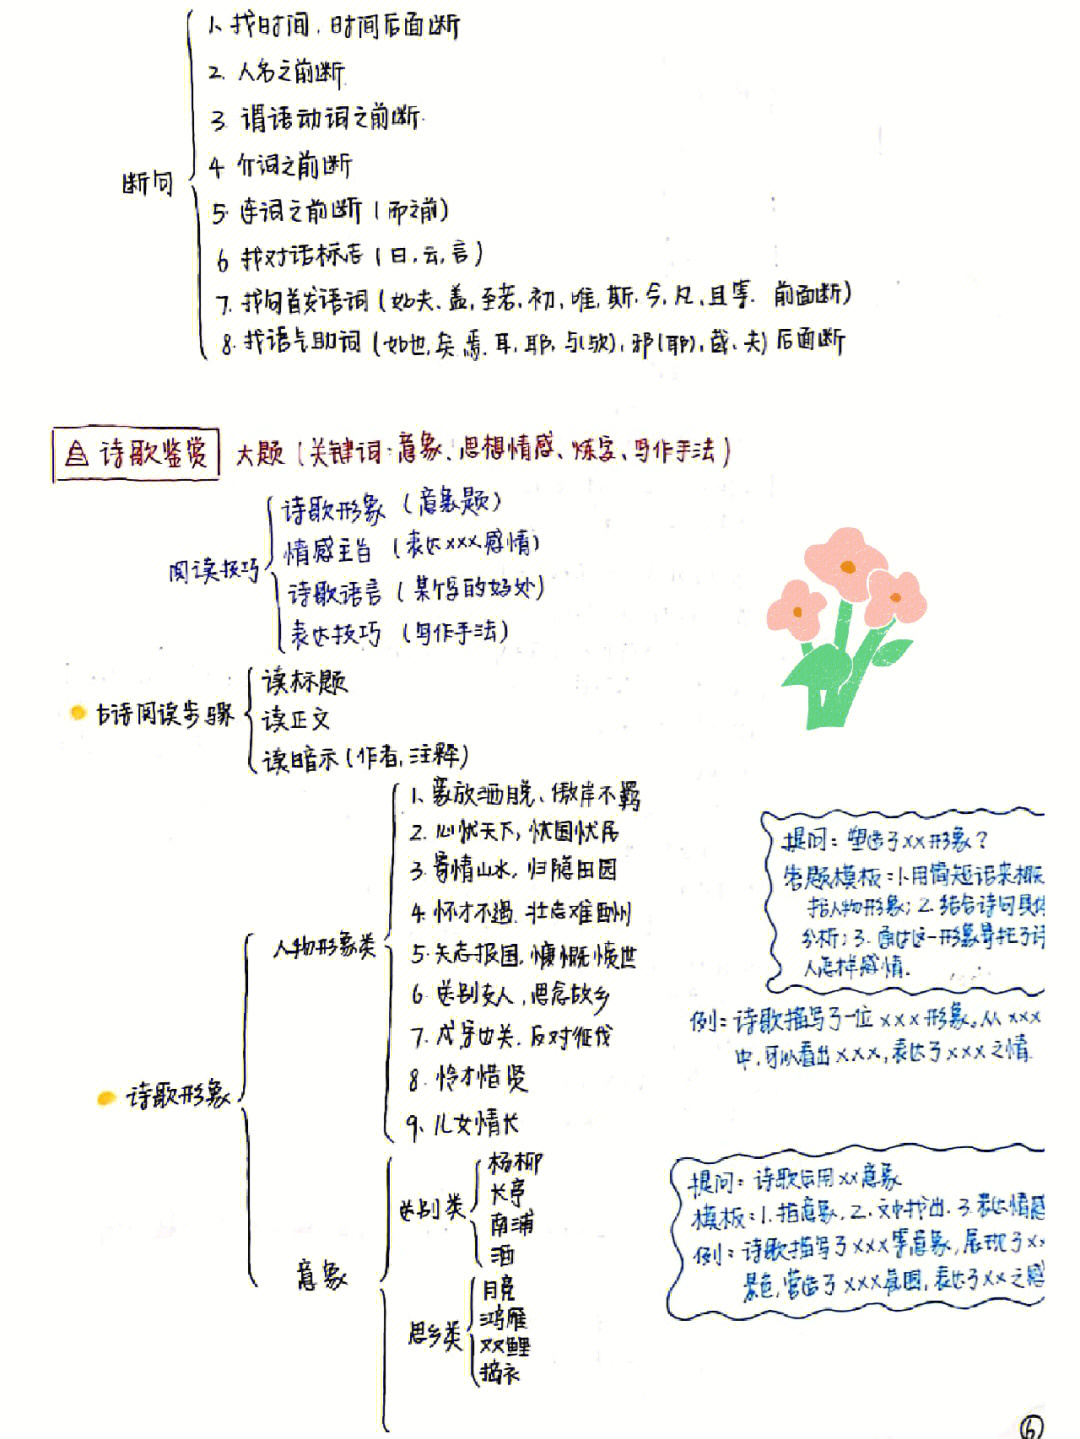 断句
1. 找时间，时间后面断
2. 人名之前断
3. 谓语动词之前断.
4 介词之前断
5. 连词之前断（而之前）
6 找对话标志（曰，云，言）
7. 找句首发语词（如夫、盖，至若，初，唯，斯，今，凡，且等. 前面断）
8. 找语气助词（如也，矣.焉.耳，耶，与(欤)，邪(耶)，哉、夫）后面断
诗歌鉴赏 大题（关键词：意象、思想情感、炼字、写作手法）
阅读技巧
诗歌形象（意象题）
情感主旨（表达xxx感情）
诗歌语言（某个字的好处）
表达技巧（写作手法）
古诗阅读步骤
读标题
读正文
读暗示（作者，注释）
诗歌形象
人物形象类
1、豪放洒脱、傲岸不羁
2. 心忧天下，忧国忧民
3. 寄情山水，归隐田园
4. 怀才不遇. 壮志难酬
5. 矢志报国，慷慨愤世
6. 送别友人，思念故乡
7. 戍守边关，反对征伐
8. 怜才惜贤
9、儿女情长
提问：塑造了xx形象？
答题模板：1.用简短话来概
括人物形象；2. 结合诗句具体
分析；3. 通过这一形象寄托了诗
人怎样感情.
例：诗歌描写了一位xxx形象。从xxx
中，可以看出xxx，表达了xxx之情.
意象
送别类
杨柳
长亭
南浦
酒
思乡类
月亮
鸿雁
双鲤
捣衣
提问：诗歌运用xx意象
模板：1. 指意象，2. 文中找出. 3. 表达情感
例：诗歌描写了xxx等意象，展现了xx
景色，营造了xxx氛围，表达了xx之感
6